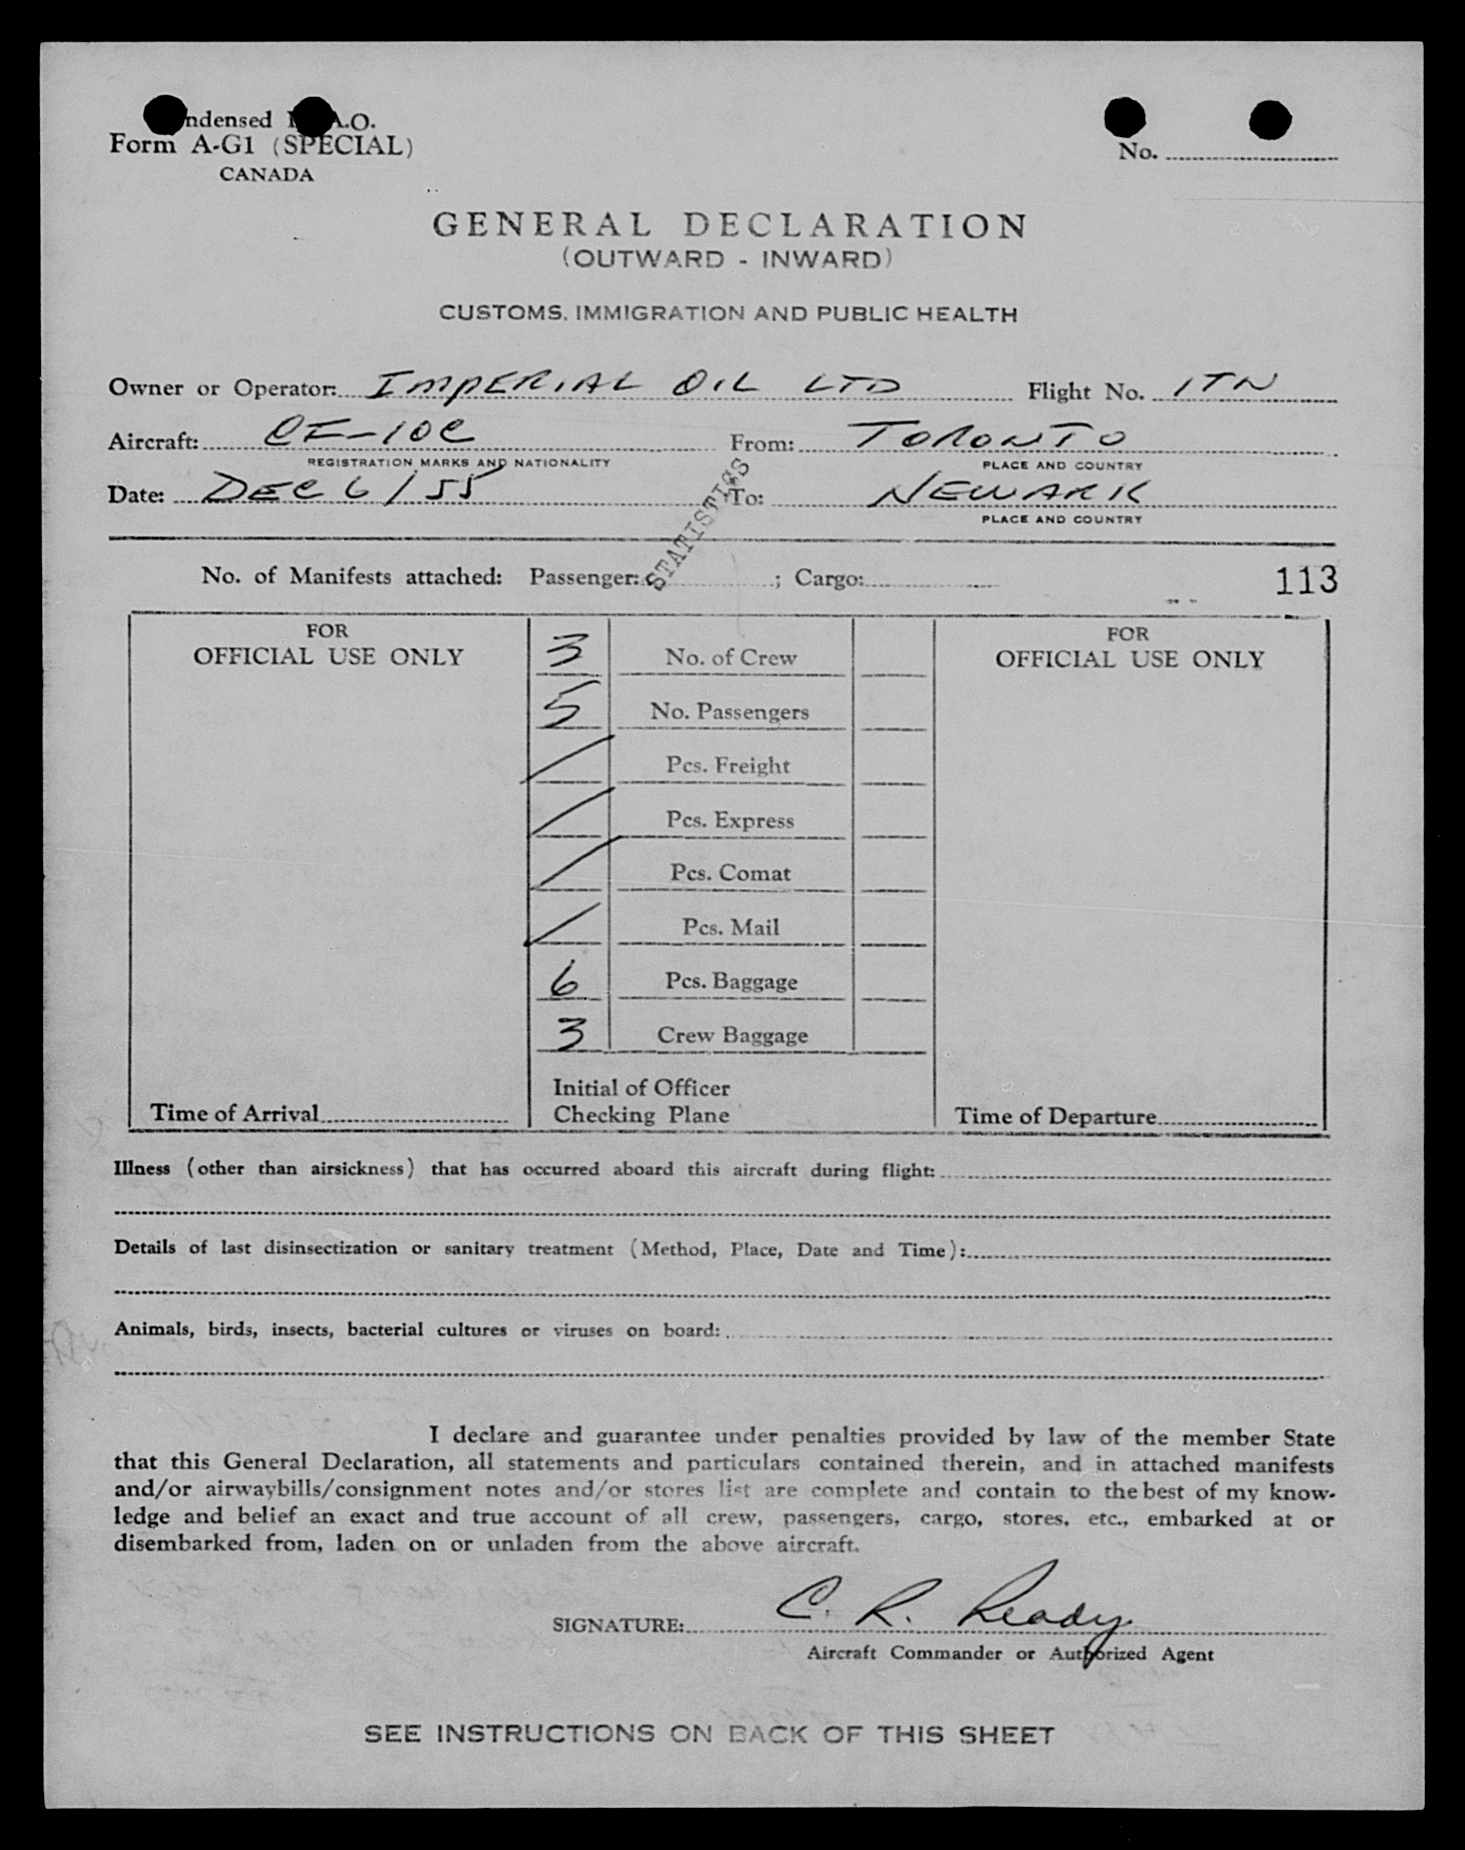 ndensed I A.O.
Form A-G1 (SPECIAL)
CANADA
No.
GENERAL DECLARATION
(OUTWARD - INWARD)
CUSTOMS, IMMIGRATION AND PUBLIC HEALTH
Owner or Operator: IMPERIAL OIL LTD Flight No. 1TN
Aircraft: CF-IOC From: TORONTO
REGISTRATION MARKS AND NATIONALITY PLACE AND COUNTRY
Date: DEC 6/55 To: NEWARK
PLACE AND COUNTRY
STATISTICS
No. of Manifests attached: Passenger: ; Cargo: 113
FOR
OFFICIAL USE ONLY
3 No. of Crew
5 No. Passengers
/ Pcs. Freight
/ Pcs. Express
/ Pcs. Comat
/ Pcs. Mail
6 Pcs. Baggage
3 Crew Baggage
FOR
OFFICIAL USE ONLY
Time of Arrival
Initial of Officer
Checking Plane
Time of Departure
Illness (other than airsickness) that has occurred aboard this aircraft during flight:
Details of last disinsectization or sanitary treatment (Method, Place, Date and Time):
Animals, birds, insects, bacterial cultures or viruses on board:
I declare and guarantee under penalties provided by law of the member State
that this General Declaration, all statements and particulars contained therein, and in attached manifests
and/or airwaybills/consignment notes and/or stores list are complete and contain to the best of my know-
ledge and belief an exact and true account of all crew, passengers, cargo, stores, etc., embarked at or
disembarked from, laden on or unladen from the above aircraft.
SIGNATURE: C. R. Ready
Aircraft Commander or Authorized Agent
SEE INSTRUCTIONS ON BACK OF THIS SHEET